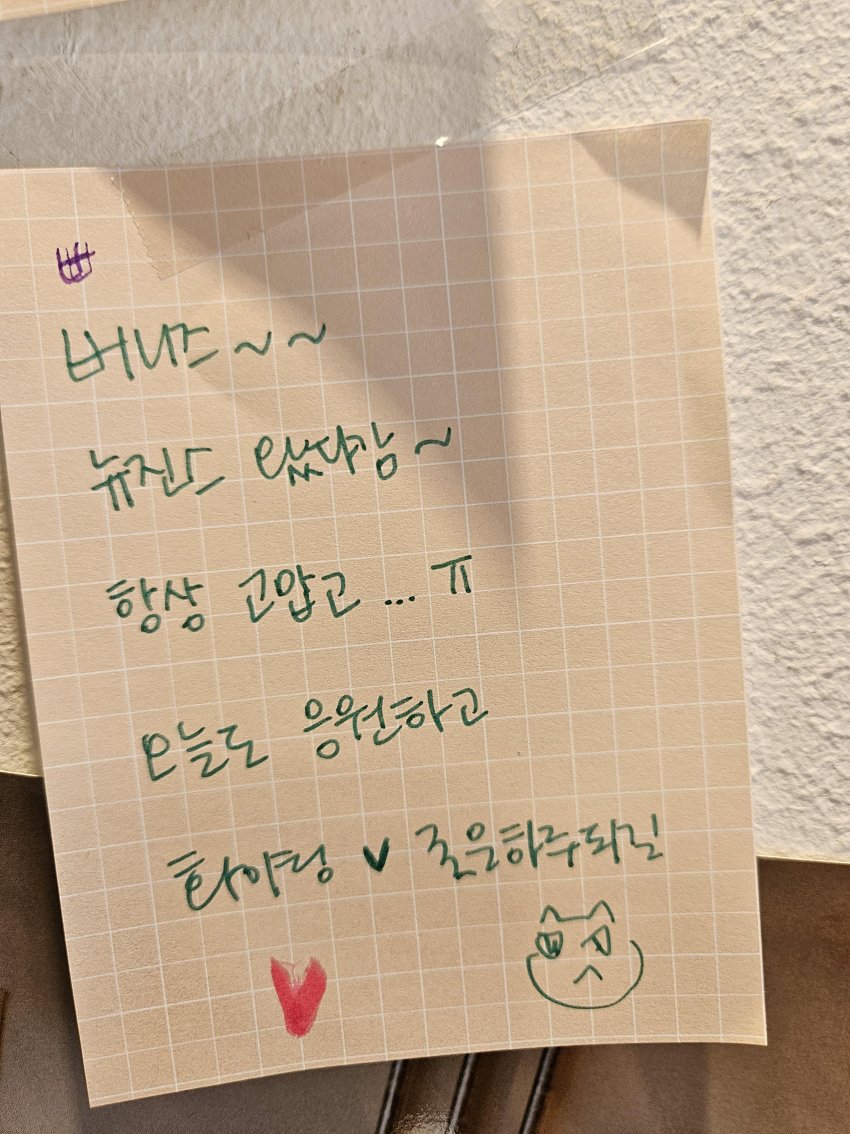 빠
버니즈~~
뉴진스 왔다감~
항상 고맙고... ㅠ
오늘도 응원하고
화이팅 ♥ 좋은하루되길